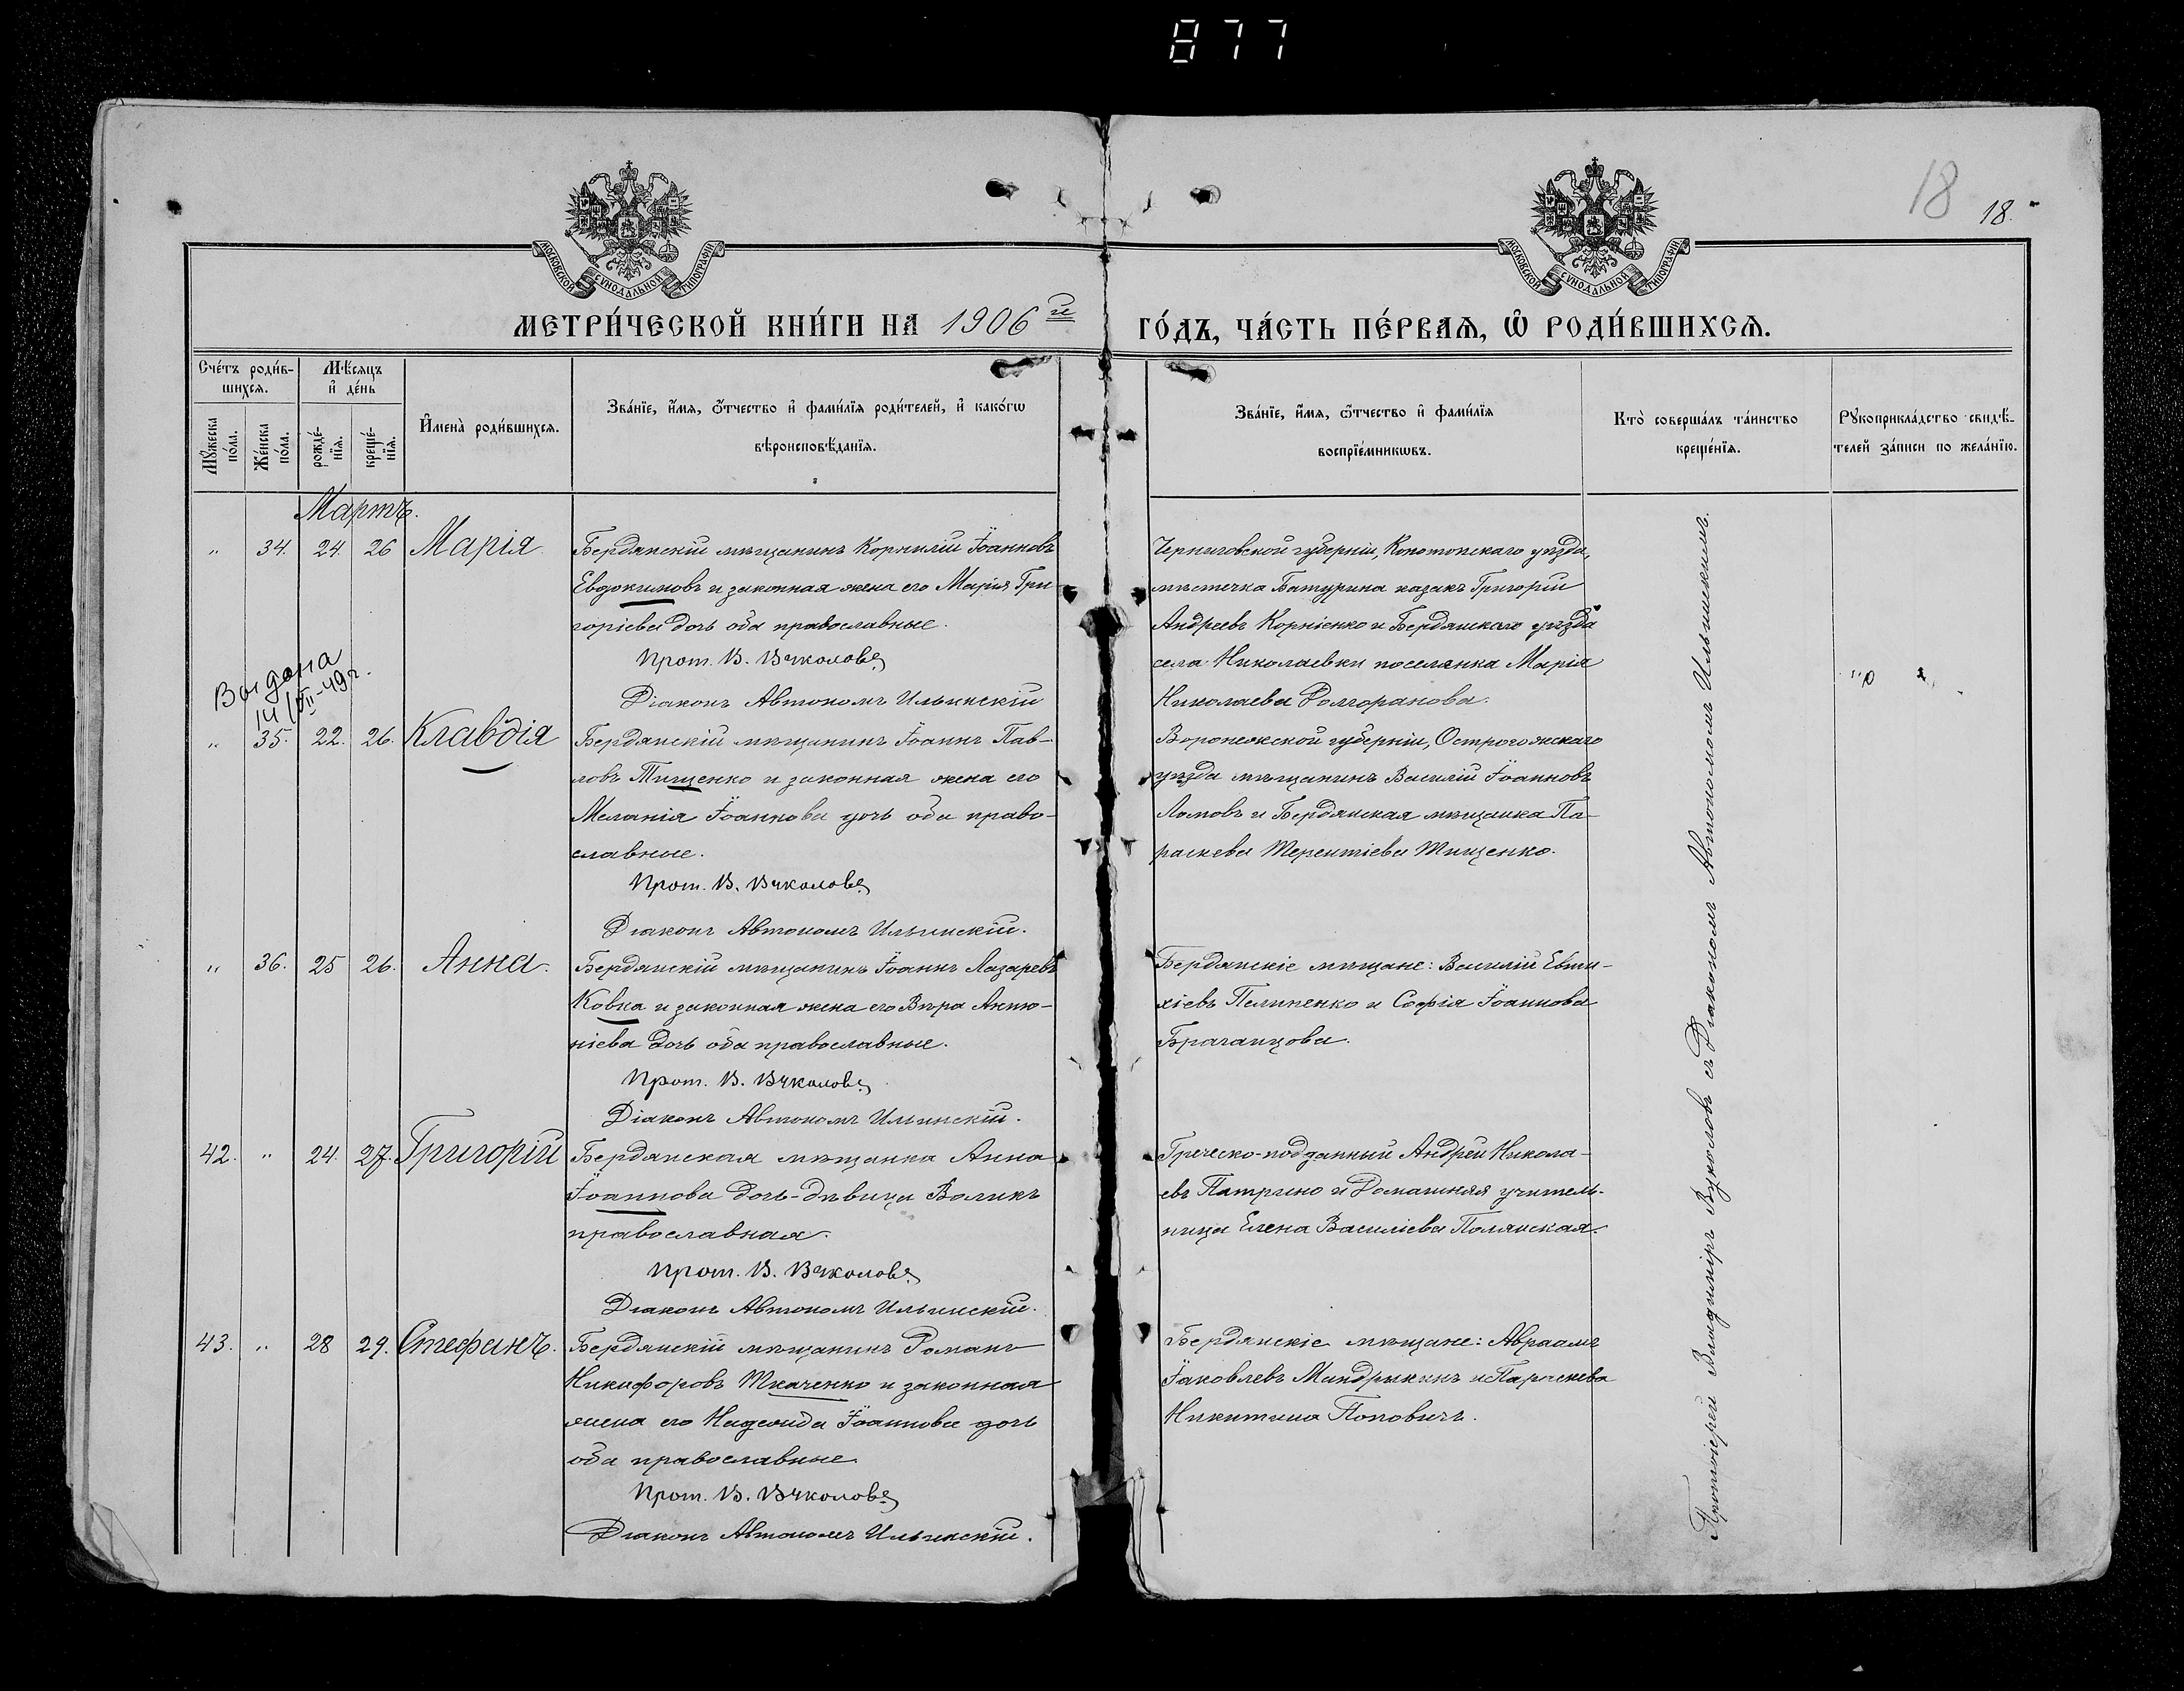 877
18
18.
МОСКОВСКОЙ СѴНОДАЛЬНОЙ ТИПОГРАФІИ
МОСКОВСКОЙ СѴНОДАЛЬНОЙ ТИПОГРАФІИ
МЕТРИ́ЧЕСКОЙ КНИ́ГИ НА 1906й ГО́ДЪ, ЧА́СТЬ ПЕ́РВАѦ, Ѡ҆ РОДИ́ВШИХСѦ.
Сче́тъ роди́в-
шихсѧ.
Мѣ́сѧцъ
и҆ де́нь
Мꙋ́жеска
по́ла.
Же́нска
по́ла.
рожде́-
нїѧ.
креще́-
нїѧ.
И҆мена̀ роди́вшихсѧ.
Зва́нїе, и҆́мѧ, ѻ҆́тчество и҆ фами́лїѧ роди́телей, и҆ како́гѡ
вѣроисповѣ́данїѧ.
Зва́нїе, и҆́мѧ, ѻ҆́тчество и҆ фами́лїѧ
воспрїе́мникѡвъ.
Кто̀ соверша́лъ та́инство
креще́нїѧ.
Рꙋкоприкла́дство свидѣ́-
телей за́писи по жела́нїю.
Мартъ.
" 34. 24. 26 Марія
Бердянскій мѣщанинъ Корнилій Іоанновъ
Евдокимовъ и законная жена его Марія Гри-
горіева дочь оба православные.
Прот. В. Вуколовъ
Діаконъ Автономъ Ильинскій
Черниговской губерніи, Конотопскаго уѣзда,
мѣстечка Батурина казакъ Григорій
Андреевъ Корніенко и Бердянскаго уѣзда
села Николаевки поселянка Марія
Николаева
Выдана
-49г.
" 35. 22. 26. Клавдія
Бердянскій мѣщанинъ Іоаннъ Пав-
ловъ Тищенко и законная жена его
Меланія Іоаннова дочь оба право-
славные.
Прот. В. Вуколовъ
Діаконъ Автономъ Ильинскій.
Воронежской губерніи, Острогожскаго
уѣзда мѣщанинъ Василій Іоанновъ
Ломовъ и Бердянская мѣщанка Па-
раскева Терентіева Тищенко.
" 36. 25 26. Анна.
Бердянскій мѣщанинъ Іоаннъ Лазаревъ
Ковка и законная жена его Вѣра Анто-
ніева дочь оба православные.
Прот. В. Вуколовъ
Діаконъ Автономъ Ильинскій.
Бердянскіе мѣщане: Василій Евти-
хіевъ Пелипенко и Софія Іоаннова
42. " 24. 27. Григорій
Бердянская мѣщанка Анна
Іоаннова дочь-дѣвица Воликъ
православная.
Прот. В. Вуколовъ
Діаконъ Автономъ Ильинскій.
Греческо-подданный Андрей Никола-
евъ Патрино и Домашняя учитель-
ница Елена Василіева Полянская.
43. " 28 29. Стефанъ.
Бердянскій мѣщанинъ Романъ
Никифоровъ Ткаченко и законная
жена его Надежда Іоаннова дочь
оба православные
Прот. В. Вуколовъ
Діаконъ Автономъ Ильинскій.
Бердянскіе мѣщане: Авраамъ
Іаковлевъ Мандрыкинъ и Параскева
Никитина Поповичъ.
Протоіерей Владиміръ Вуколовъ съ Діакономъ Автономомъ Ильинскимъ.